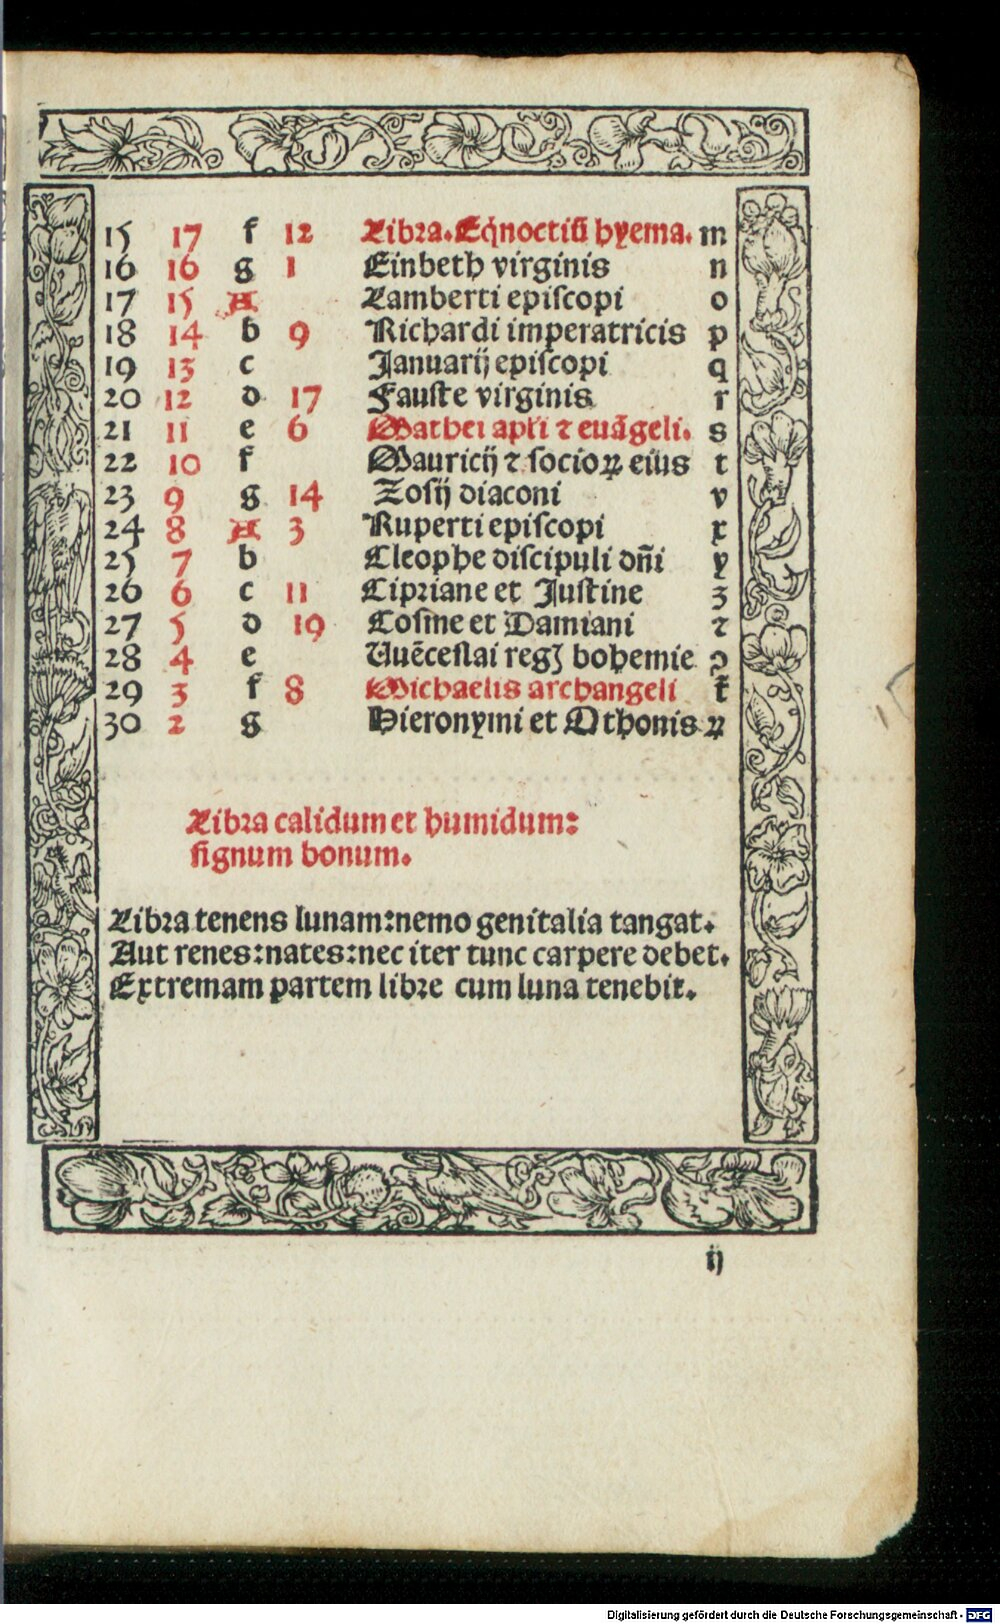 15 17 f 12 Libra. Eq̇noctiū hyema. m
16 16 g 1 Einbeth virginis n
17 15 A Lamberti episcopi o
18 14 b 9 Richardi imperatricis p
19 13 c Januarij episcopi q
20 12 d 17 Fauste virginis r
21 11 e 6 Mathei apl'i ⁊ euāgeli. s
22 10 f Mauricij ⁊ socioꝝ eius t
23 9 g 14 Zosij diaconi v
24 8 A 3 Ruperti episcopi x
25 7 b Cleophe discipuli dn̄i y
26 6 c 11 Cipriane et Justine z
27 5 d 19 Cosme et Damiani ⁊
28 4 e Wēceslai regꝭ bohemie ꝯ
29 3 f 8 Michaelis archangeli
30 2 g Hieronymi et Othonis ꝝ
Libra calidum et humidum:
signum bonum.
Libra tenens lunam: nemo genitalia tangat.
Aut renes: nates: nec iter tunc carpere debet.
Extremam partem libre cum luna tenebit.
ij
Digitalisierung gefördert durch die Deutsche Forschungsgemeinschaft - DFG